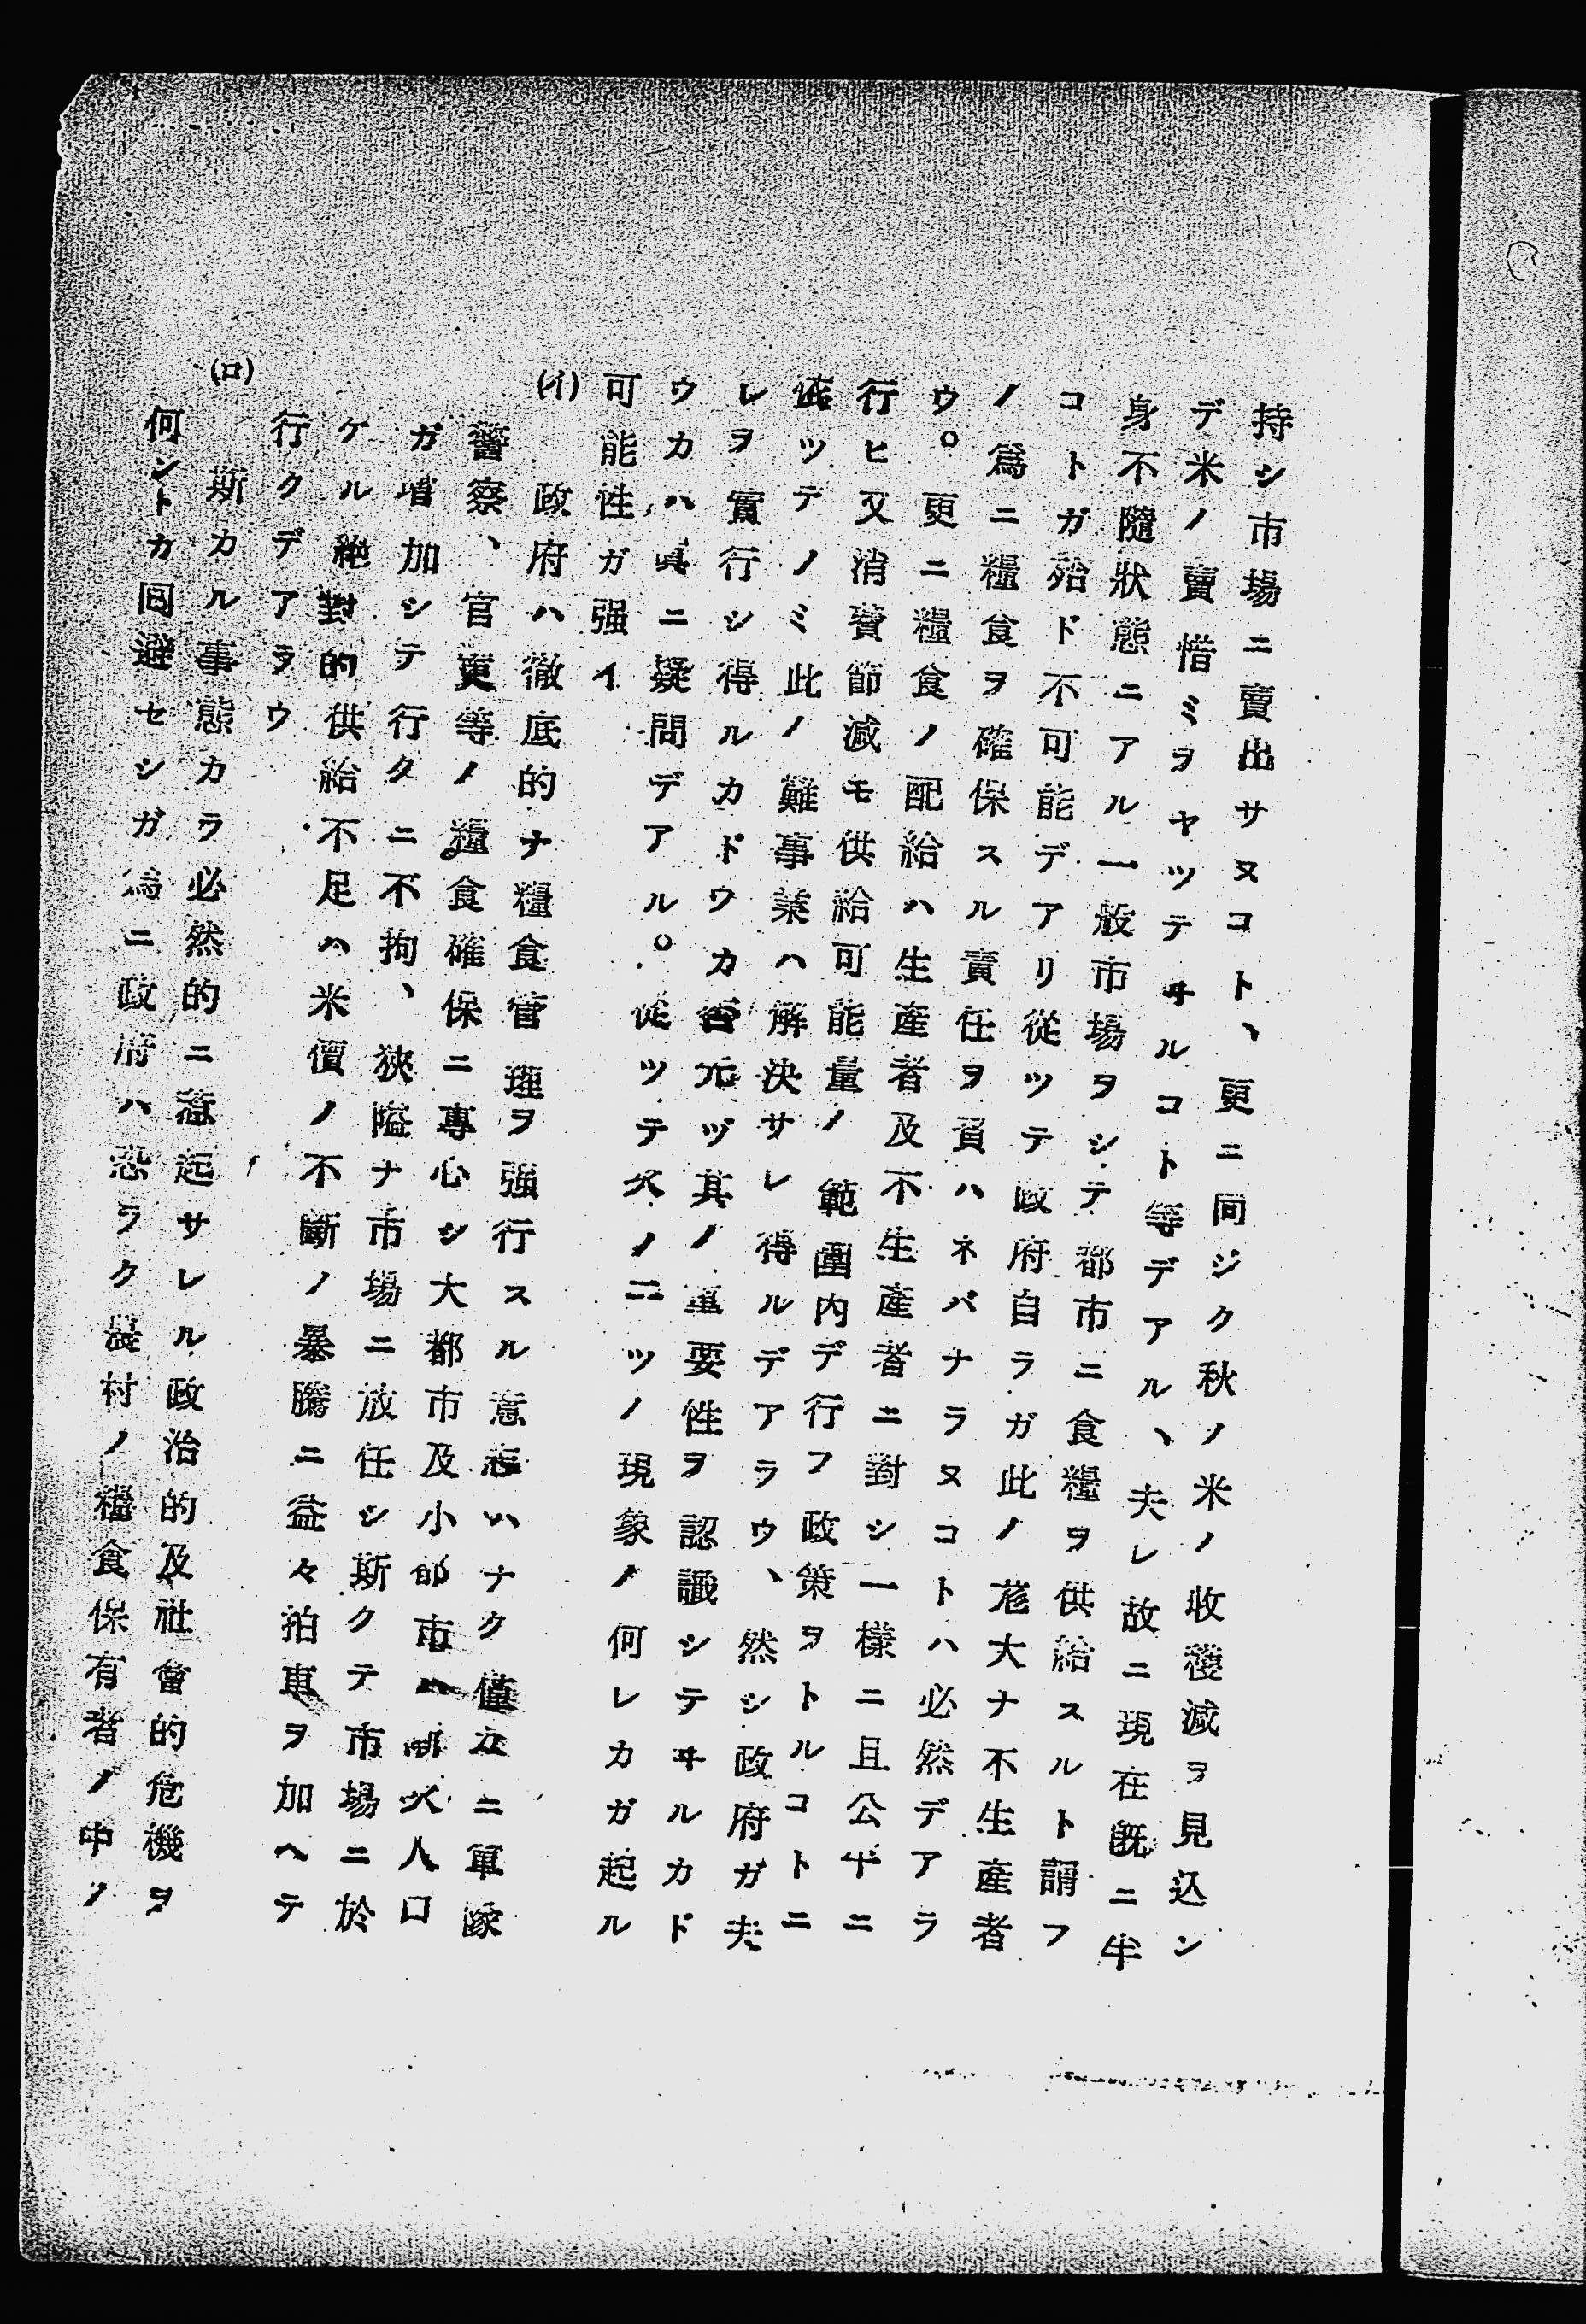 持シ市場ニ賣出サヌコト、更ニ同ジク秋ノ米ノ收穫減ヲ見込ン
デ米ノ賣惜ミヲヤツテヰルコト等デアル、夫レ故ニ現在既ニ半
身不隨狀態ニアル一般市場ヲシテ都市ニ食糧ヲ供給スルト謂フ
コトガ殆ド不可能デアリ從ツテ政府自ラガ此ノ厖大ナ不生產者
ノ爲ニ糧食ヲ確保スル責任ヲ負ハネバナラヌコトハ必然デアラ
ウ。更ニ糧食ノ配給ハ生產者及不生產者ニ對シ一樣ニ且公平ニ
行ヒ又消費節減モ供給可能量ノ範圍內デ行フ政策ヲトルコトニ
依ツテノミ此ノ難事業ハ解決サレ得ルデアラウ、然シ政府ガ夫
レヲ實行シ得ルカドウカ否元ヅ其ノ重要性ヲ認識シテヰルカド
ウカハ眞ニ疑問デアル。從ツテ次ノ二ツノ現象ノ何レカガ起ル
可能性ガ强イ
(イ) 政府ハ徹底的ナ糧食管理ヲ强行スル意志ハナク僅カニ軍隊
警察、官吏等ノ糧食確保ニ專心シ大都市及小都市ハ漸次人口
ガ增加シテ行クニ不拘、狹隘ナ市場ニ放任シ斯クテ市場ニ於
ケル絕對的供給不足ハ米價ノ不斷ノ暴騰ニ益々拍車ヲ加ヘテ
行クデアラウ
(ロ) 斯カル事態カラ必然的ニ惹起サレル政治的及社會的危機ヲ
何ントカ回避センガ爲ニ政府ハ恐ラク農村ノ糧食保有者ノ中ノ